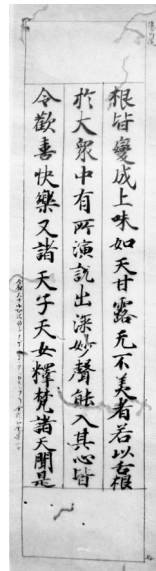 根皆變成上味如天甘露无不美者若以舌根
於大衆中有所演說出深妙聲能入其心皆
令歡喜快樂又諸天子天女釋梵諸天聞是